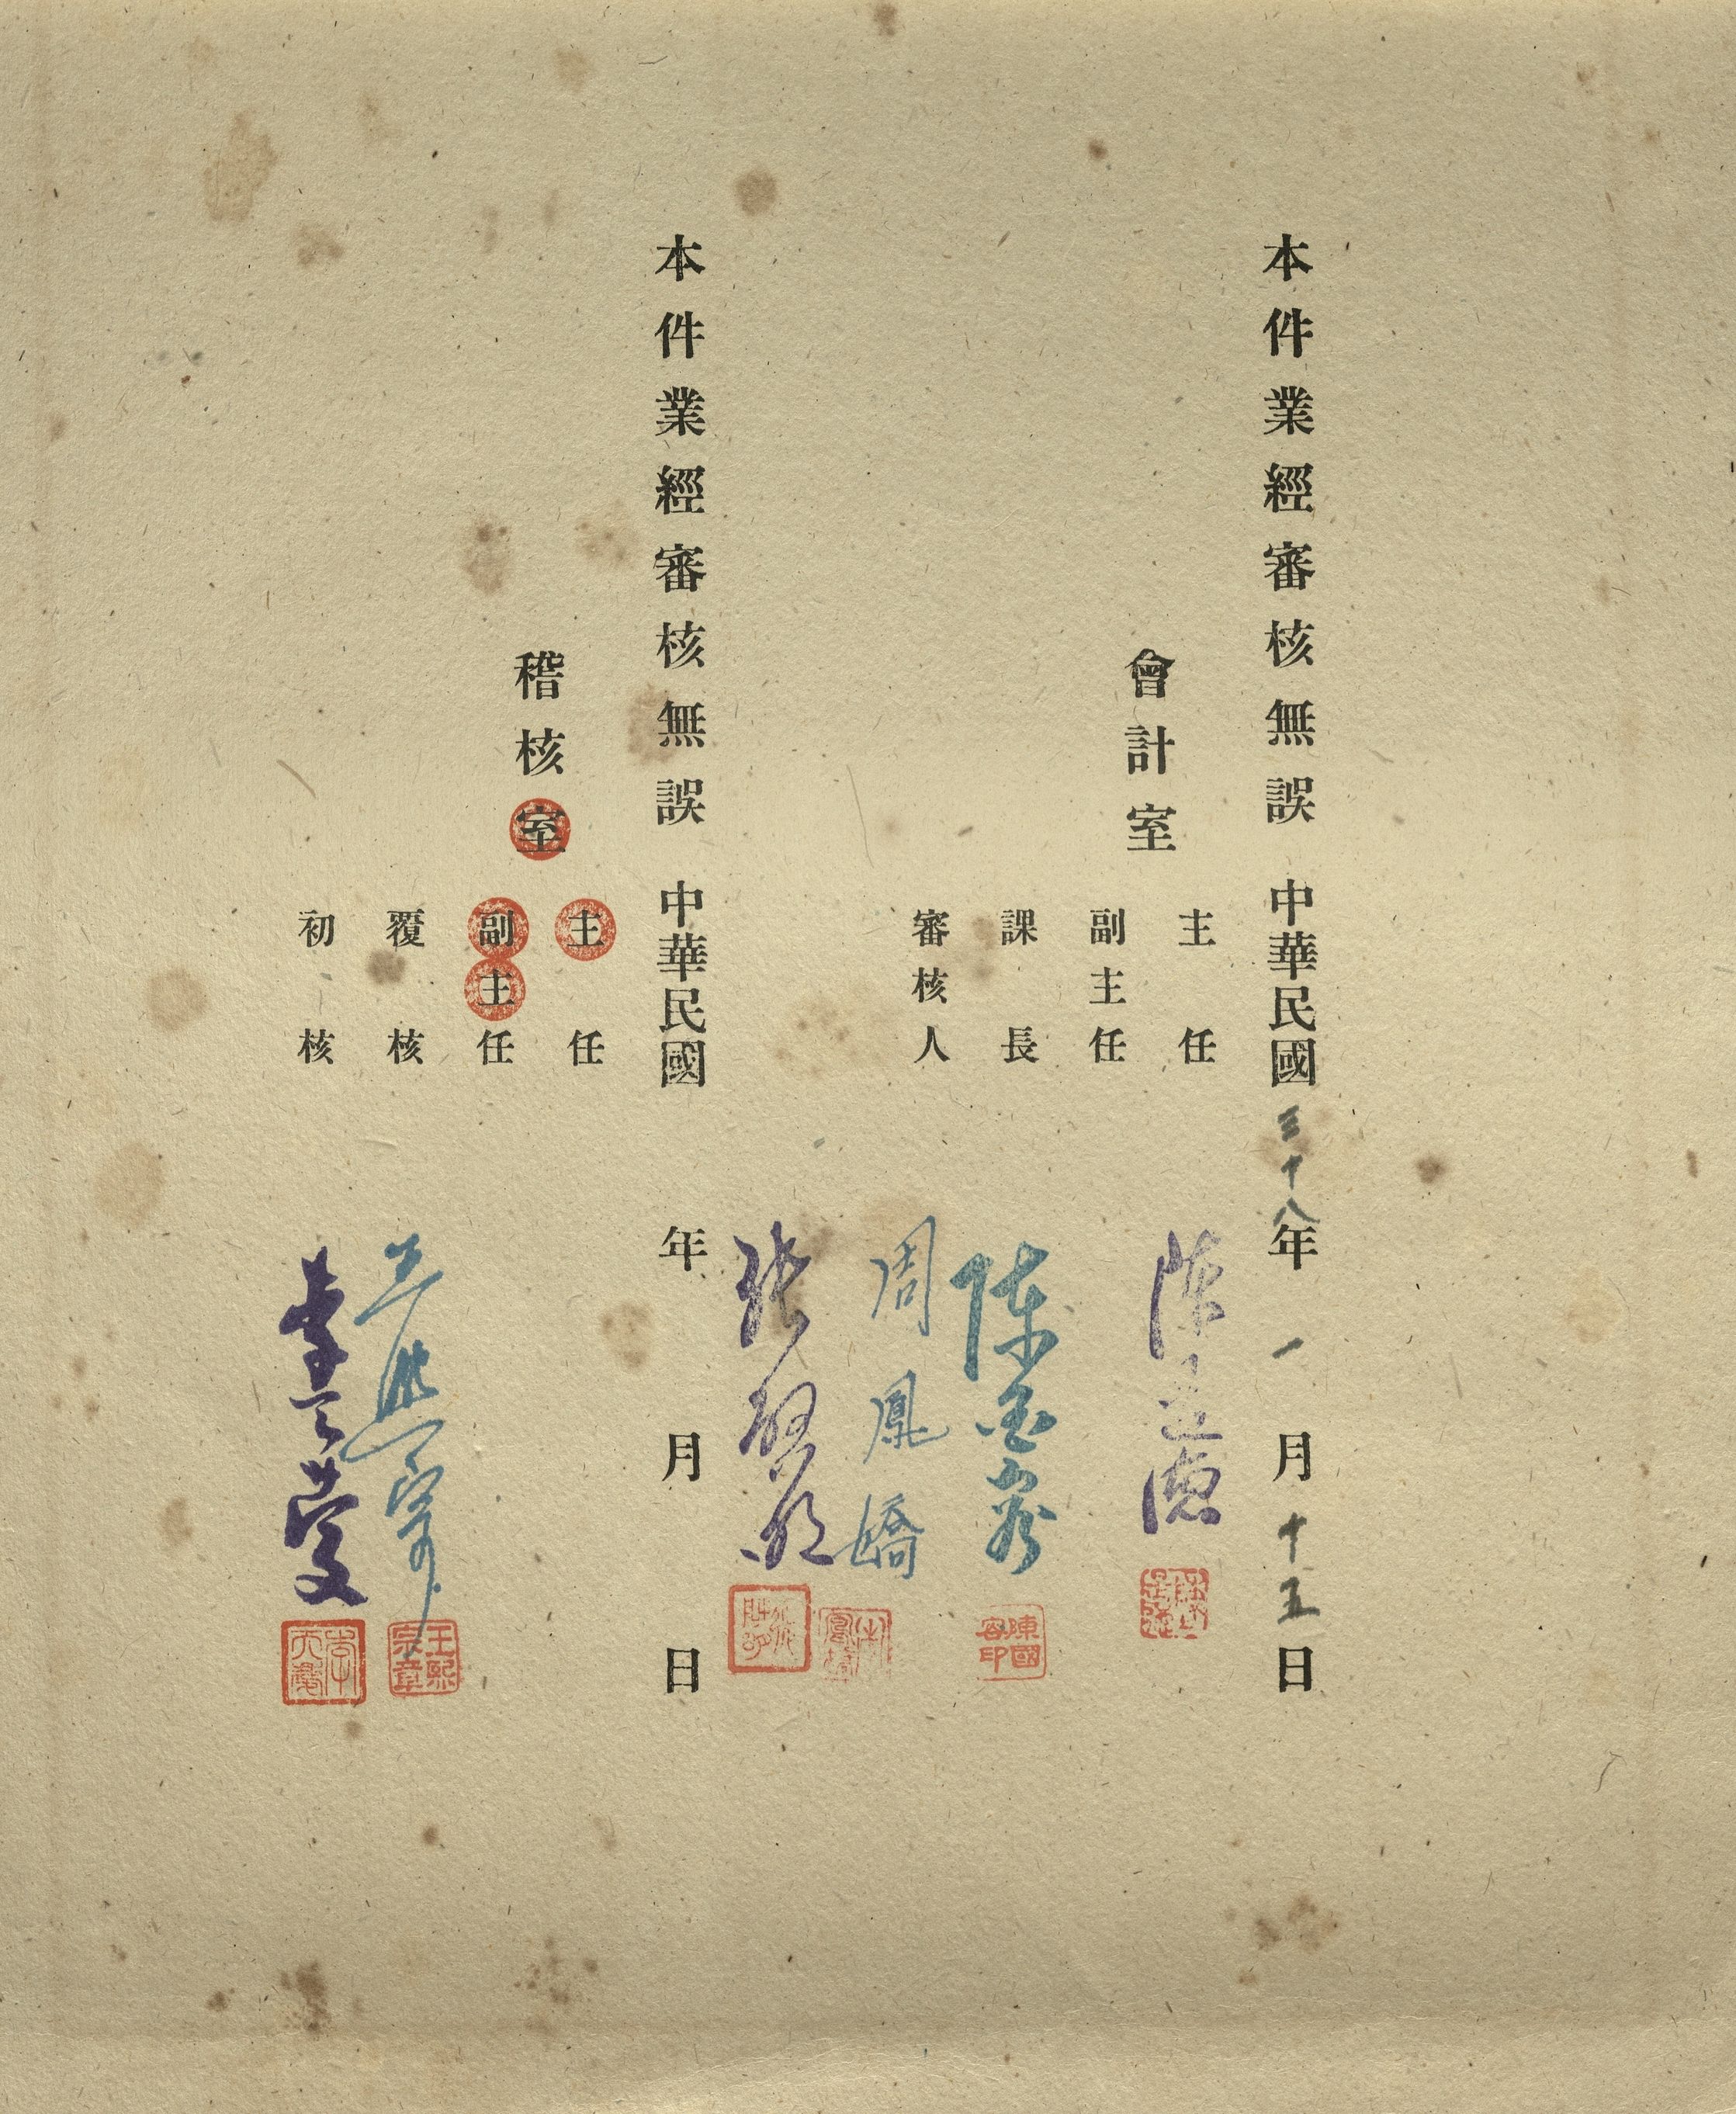 本件業經審核無誤 中華民國三十八年一月十五日
會計室
主任
副主任 陳國容
陳國容印
課長 周鳳嬌
審核人
本件業經審核無誤 中華民國 年 月 日
稽核室
主任
副主任
覆核 王熙宗
王熙宗章
初核